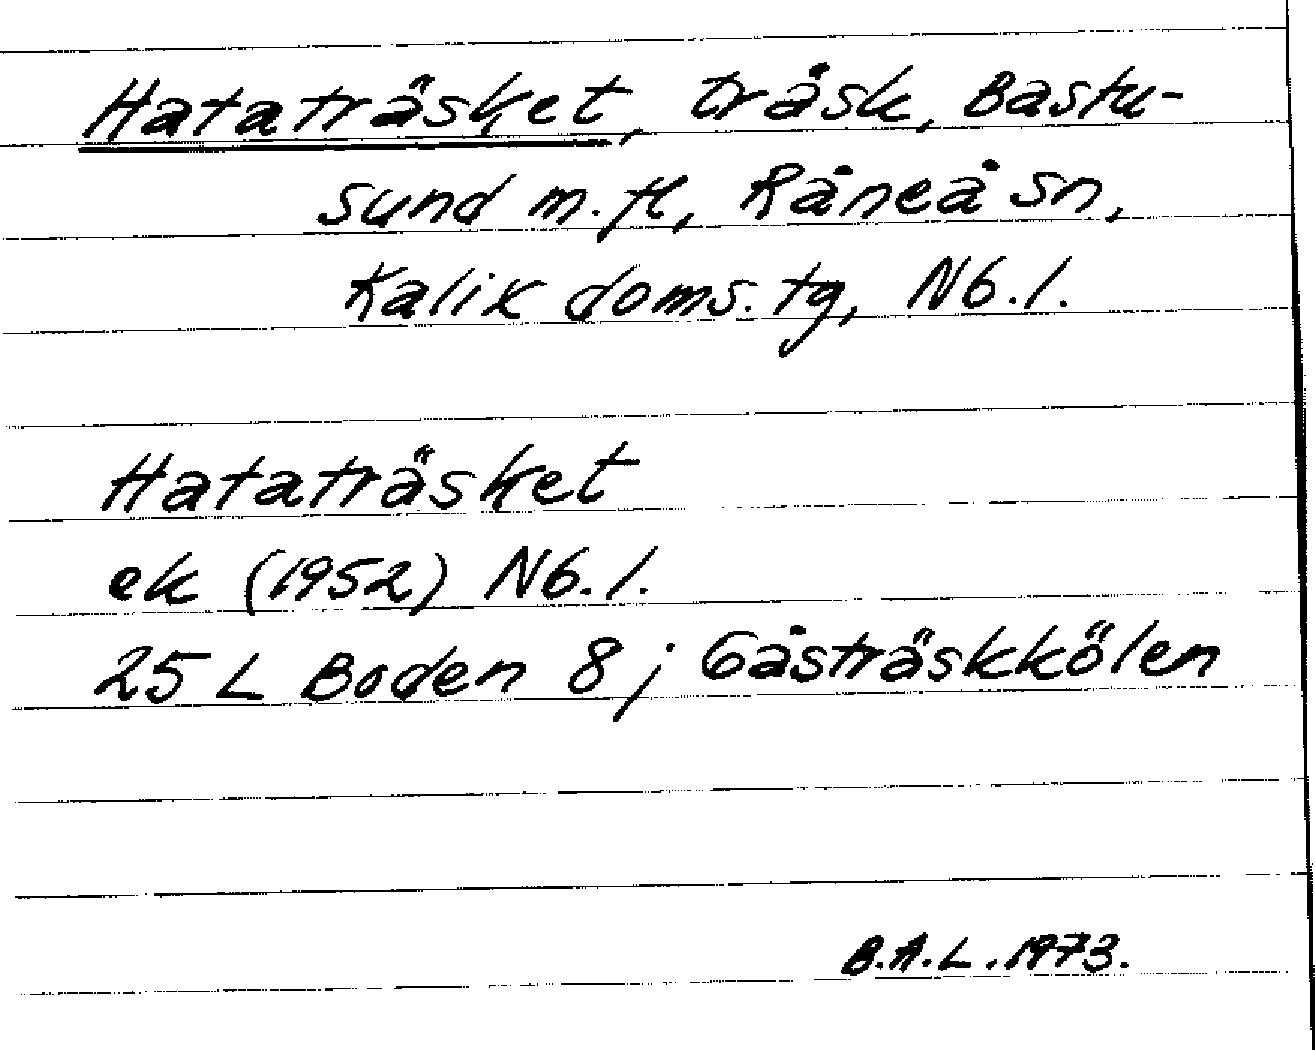 Hataträsket, träsk, Bastu-
sund m.fl, Råneå sn,
Kalix doms.tg, Nb.l.
Hataträsket
ek (1952) Nb.l.
25 L Boden 8 j Gåsträskkölen
B.A.L. 1973.